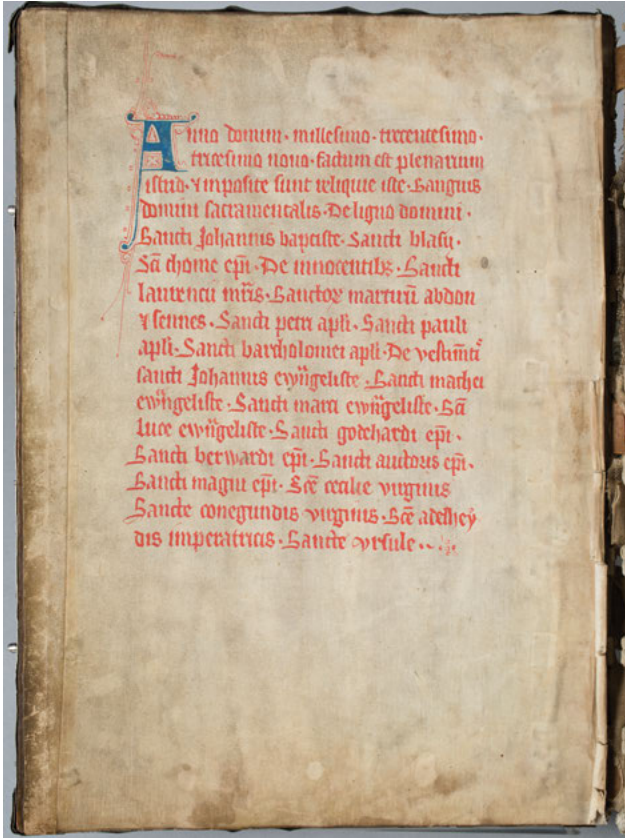 Anno domini · millesimo · trecentesimo ·
tricesimo nono · factum est plenarium
istud · ⁊ imposite sunt reliquie iste · Sanguis
domini sacramentalis · De ligno domini ·
Sancti Johannis baptiste · Sancti blasii ·
Sc̄i thome ep̄i · De innocentibꝫ · Sancti
laurencii mr̄is · Sanctoꝝ martirū abdon
⁊ sennes · Sancti petri apl̄i · Sancti pauli
apl̄i · Sancti bartholomei apl̄i · De vestim̄tꝭ
sancti Johannis ewāgeliste · Sancti mathei
ewāgeliste · Sancti marci ewāgeliste · Sc̄i
luce ewāgeliste · Sancti godehardi ep̄i ·
Sancti berwardi ep̄i · Sancti auctoris ep̄i ·
Sancti magni ep̄i · Sc̄e cecilie virginis
Sancte conegundis virginis · Sc̄e adelhey
dis imperatricis · Sancte vrsule · ·